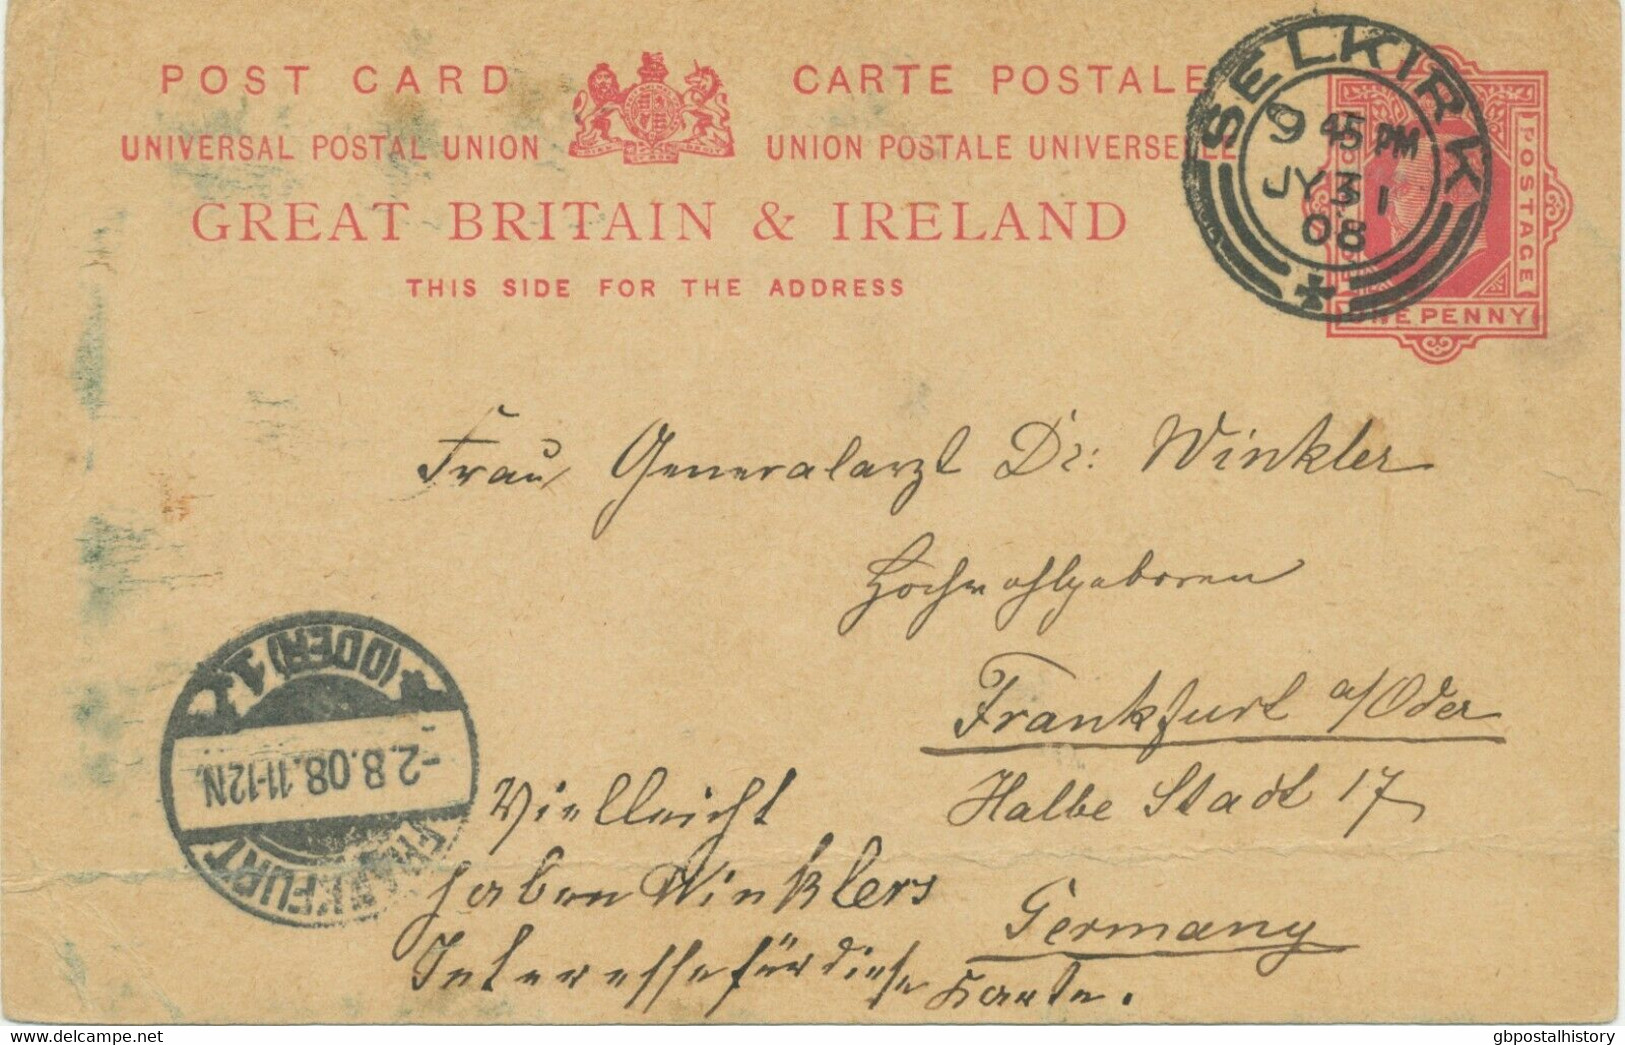 POST CARD CARTE POSTALE
UNIVERSAL POSTAL UNION UNION POSTALE UNIVERSELLE
GREAT BRITAIN & IRELAND
THIS SIDE FOR THE ADDRESS
SELKIRK
9 45 PM
JY 31
08
POSTAGE
ONE PENNY
Frau Generalarzt Dr: Winkler
Hochwohlgeboren
Frankfurt a/Oder
Halbe Stadt 17
Germany
FRANKFURT
-2.8.08.11-12N.
* (ODER) 1 *
Vielleicht
haben Winklers
Interesse für diese Karte.
www.delcampe.net
gbpostalhistory